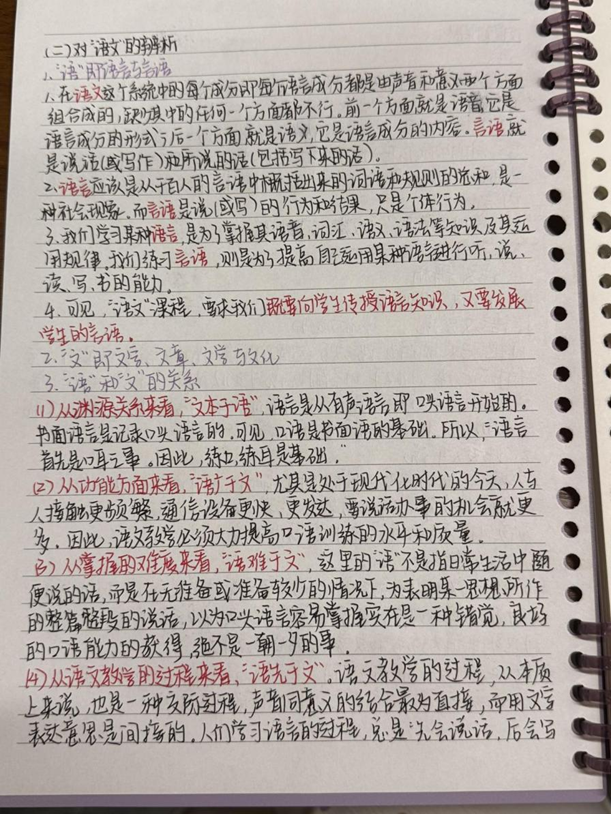 (二)对“语文”的辨析
1.“语”即语言与言语
1.在语文这个系统中的每个成分即每个语言成分都是由声音和意义两个方面
组合成的,缺少其中的任何一个方面都不行。前一个方面就是语音,它是
语言成分的形式;后一个方面就是语义,它是语言成分的内容。言语就
是说话(或写作)和所说的话(包括写下来的话)。
2.语言应该是从千百人的言语中概括出来的词语和规则的总和,是一
种社会现象。而言语是说(或写)的行为和结果,只是个体行为。
3.我们学习某种语言,是为了掌握其语音、词汇、语义、语法等知识及其运
用规律,我们练习言语,则是为了提高自己运用某种语言进行听、说、
读、写、书的能力。
4.可见,“语文”课程,要求我们既要向学生传授语言知识,又要发展
学生的言语。
2.“文”即文字、文章、文学与文化
3.“语”和“文”的关系
(1)从渊源关系来看,“文本于语”,语言是从有声语言即口头语言开始的。
书面语言是记录口头语言的。可见,口语是书面语的基础。所以,“语言
首先是口耳之事。因此,练口练耳是基础。”
(2)从功能方面来看,“语广于文”,尤其是处于现代化时代的今天,人与
人接触更频繁,通信设备更快、更发达,要说话办事的机会就更
多。因此,语文教学必须大力提高口语训练的水平和质量。
(3)从掌握的难度来看,“语难于文”,这里的“语”不是指日常生活中随
便说的话,而是在无准备或准备较少的情况下,为表明某一思想所作
的整篇整段的说话,以为口头语言容易掌握实在是一种错觉,良好
的口语能力的获得,绝不是一朝一夕的事。
(4)从语文教学的过程来看,“语先于文”。语文教学的过程,从本质
上来说,也是一种交际过程,声音同意义的结合最为直接,而用文字
表达意思是间接的。人们学习语言的过程,总是先会说话,后会写